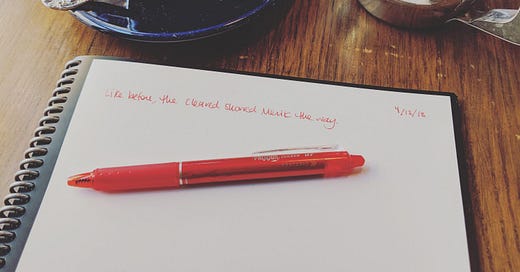 Like before, the cleaved showed Merik the way.
4/12/18